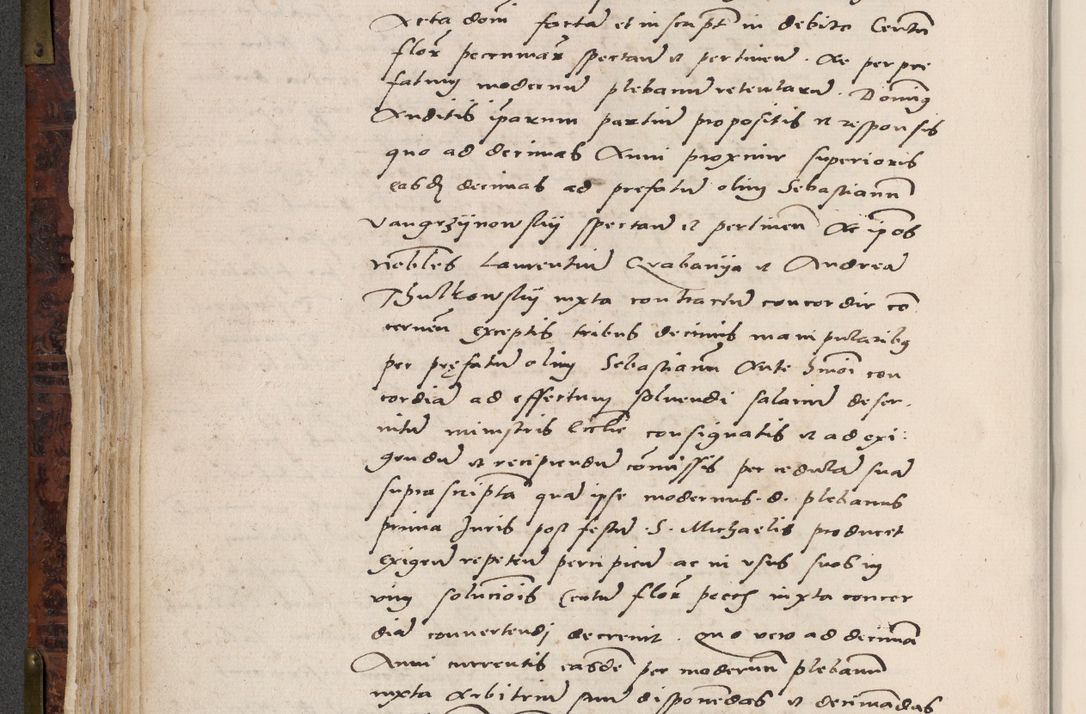 Acta domī factā et in scriptō in debito Centū
florꝰ pecuniarꝰ spectanᵗ et pertinenᵗ. Ac per pre
fatum modernū plebanū retentarū. Dominus
Auditis ipsarum partiū propositis et responsis
quo ad decimas Anni proxime superioris
easdē decimas ad prefatū olim Sebastianū
Vangrzynowskij spectarē et pertinerē Ac ip̄os
nobiles Laurentiū Grabanija et Andreā
Thulkowskij iuxta contractū concordie co
cernēn exceptis tribus decimis manipularibus
per pręfatū olim Sebastianū Ante hm̄oi con
cordiā ad effectum solvendi salariū deser.
vitū ministris Ecclie consignatis et ad exi:
gendū et recipiendū com̄issis per cedulā suā
suprascriptā quā ipse modernus d. plebanus
prima Juris post festū S. Michaelis producet
exigerē repeterē percipierē ac in usus suos in
vim solucīois Centū florꝰ pecch iuxta concor
diā convertendi decrevit. Quo vero ad decimā
Anni currentis easdē per modernū plebanū
iuxta Arbitriū suū disponēdas et decimādas